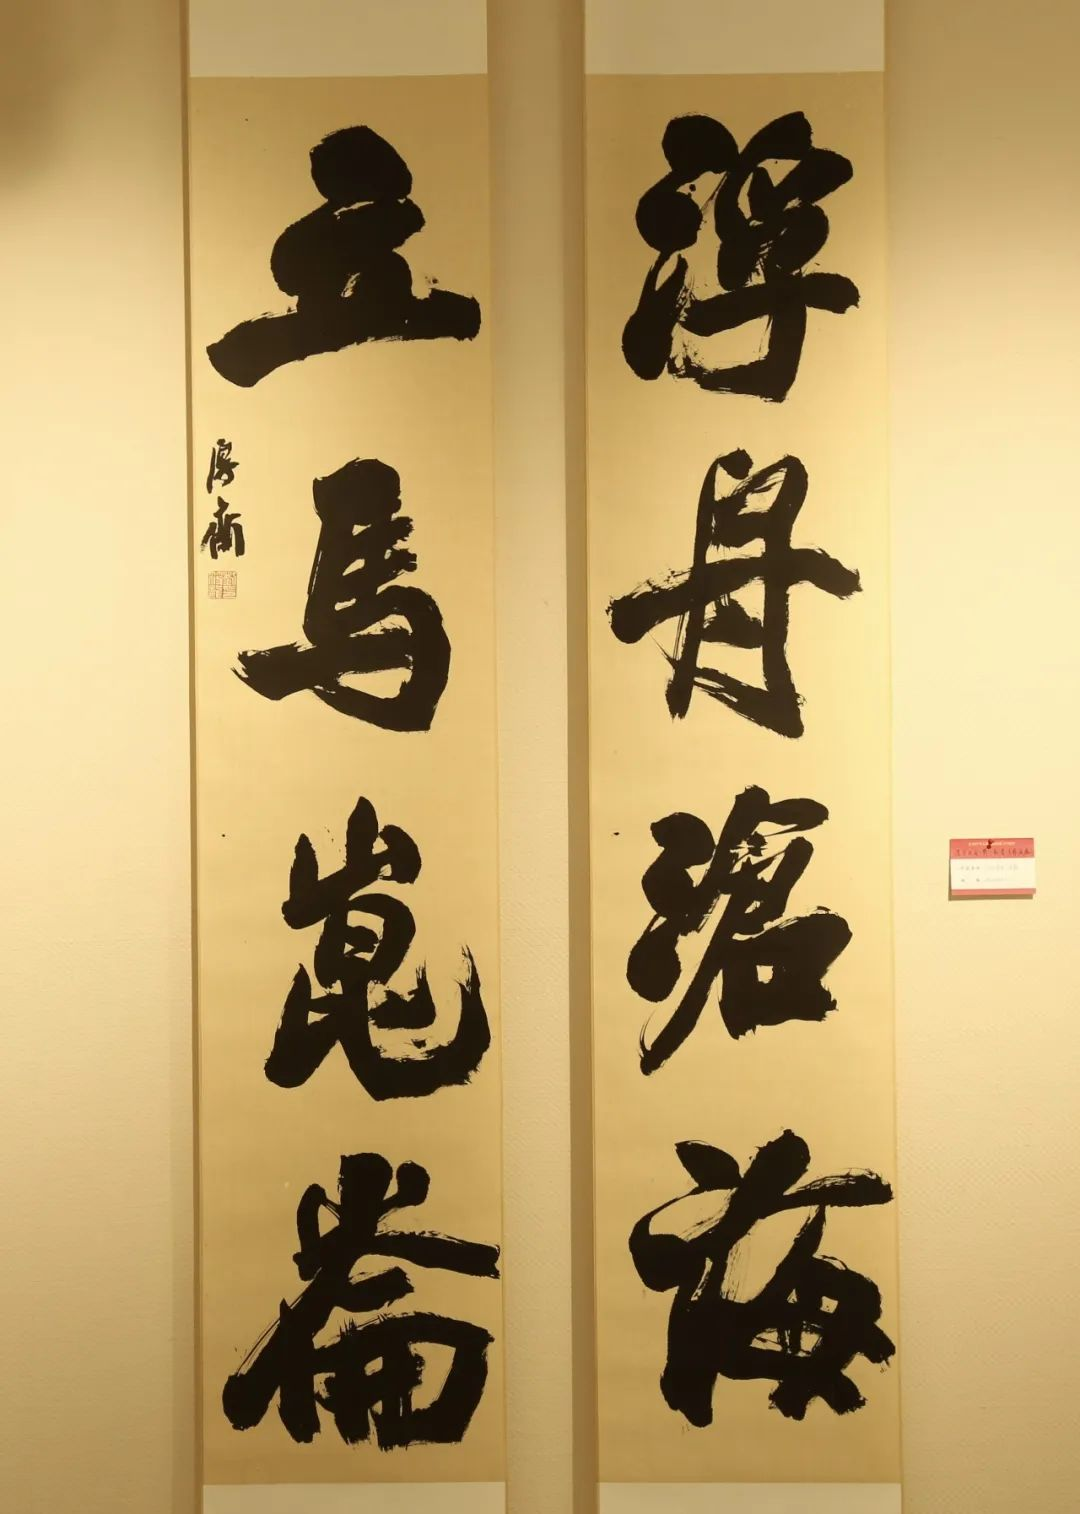 浮舟滄海
立馬崑崙
厚齋